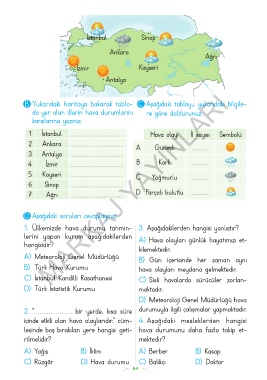 İstanbul
Sinop
Ankara
Ağrı
İzmir
Kayseri
Antalya
B Yukarıdaki haritaya bakarak tablo-
da yer alan illerin hava durumlarını
karşılarına yazınız.
1 İstanbul
2 Ankara
3 Antalya
4 İzmir
5 Kayseri
6 Sinop
7 Ağrı
C Aşağıdaki tabloyu yukarıdaki bilgile-
re göre doldurunuz.
Hava olayı İl sayısı Sembolü
A Güneşli
B Karlı
C Yağmurlu
D Parçalı bulutlu
D Aşağıdaki soruları cevaplayınız.
1. Ülkemizde hava durumu tahmin-
lerini yapan kurum aşağıdakilerden
hangisidir?
A) Meteoroloji Genel Müdürlüğü
B) Türk Hava Kurumu
C) İstanbul Kandilli Rasathanesi
D) Türk İstatistik Kurumu
2. "............... bir yerde, kısa süre
içinde etkili olan hava olaylarıdır." cüm-
lesinde boş bırakılan yere hangisi geti-
rilmelidir?
A) Yağış B) İklim
C) Rüzgâr D) Hava durumu
3. Aşağıdakilerden hangisi yanlıştır?
A) Hava olayları günlük hayatımızı et-
kilemektedir.
B) Gün içerisinde her zaman aynı
hava olayları meydana gelmektedir.
C) Sisli havalarda sürücüler zorlan-
maktadır.
D) Meteoroloji Genel Müdürlüğü hava
durumuyla ilgili çalışmalar yapmaktadır.
4. Aşağıdaki mesleklerden hangisi
hava durumunu daha fazla takip et-
mektedir?
A) Berber B) Kasap
C) Balıkçı D) Doktor